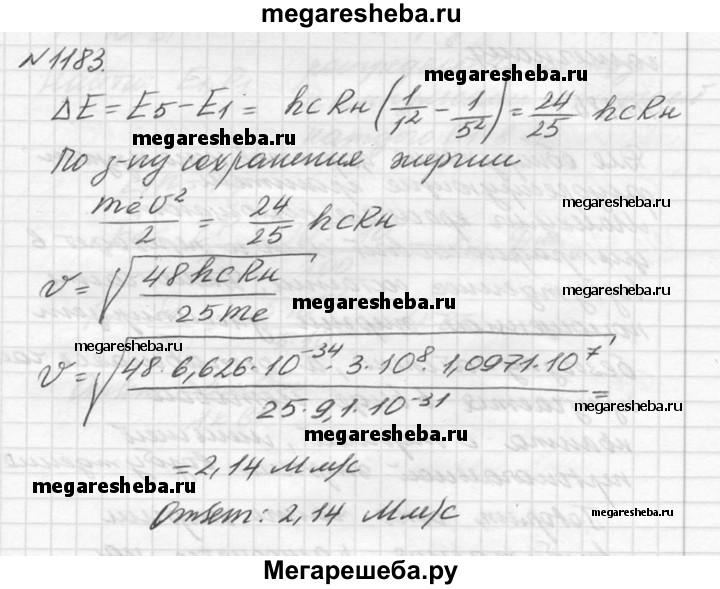 megaresheba.ru
N 1183.
megaresheba.ru
ΔE = E5 - E1 = hcRн (1/1² - 1/5²) = 24/25 hcRн
megaresheba.ru
По з-ну сохранения энергии
meυ²/2 = 24/25 hcRн
megaresheba.ru
megaresheba.ru
υ = √(48hcRн/25me)
megaresheba.ru
megaresheba.ru
megaresheba.ru
υ = √(48·6,626·10⁻³⁴·3·10⁸·1,0971·10⁷/25·9,1·10⁻³¹) =
megaresheba.ru
megaresheba.ru
= 2,14 Мм/с
megaresheba.ru
Ответ: 2,14 Мм/с
megaresheba.ru
Мегарешеба.ру